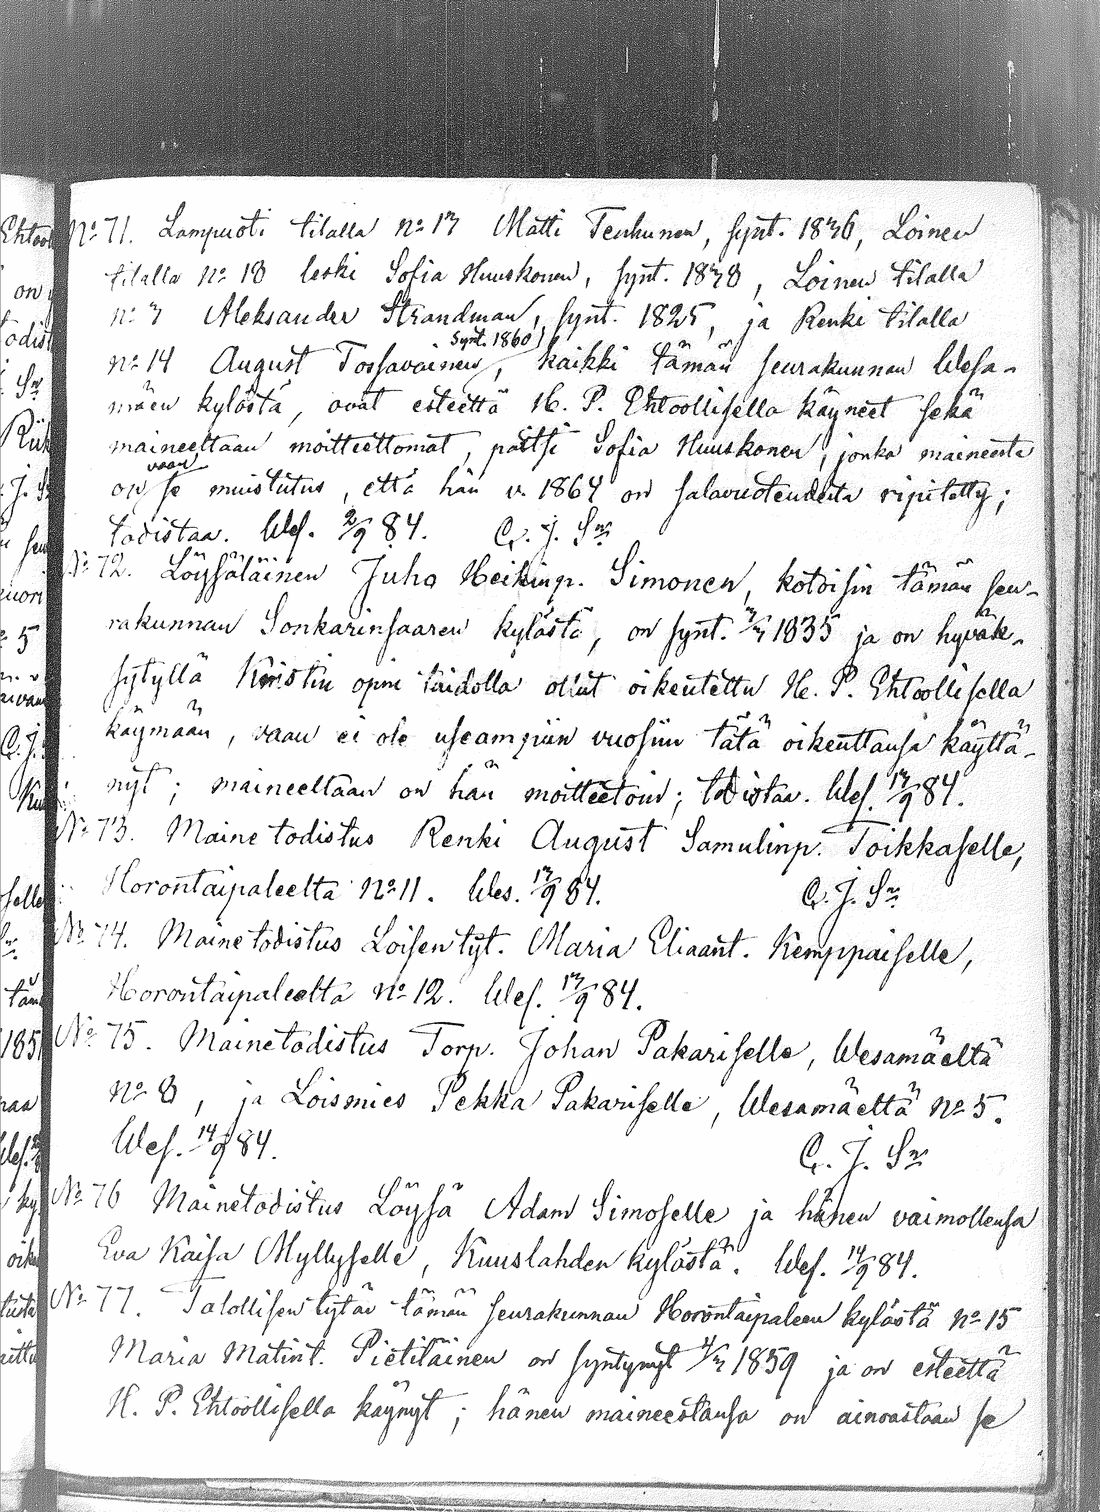 No 71. Lampuoti tilalla no 17 Matti Tenhunen, synt. 1836, Loinen
tilalla no 18 leski Sofia Huuskonen, synt. 1838, Loinen tilalla
no 7 Aleksander Strandman, synt. 1825, ja Renki tilalla
no 14 August Tossavainen, synt. 1860, kaikki tämän seurakunnan Wesa-
mäen kylästä, ovat esteettä H. P. Ehtoollisella käyneet sekä
maineeltaan moitteettomat, paitsi Sofia Huuskonen, jonka maineesta
on vaan se muistutus, että hän v. 1864 on salavuoteudesta ripitetty;
todistaa. Wes. 2/9 84. C. J. Sn
No 72. Löysäläinen Juho Heikinp. Simonen, kotoisin tämän seu-
rakunnan Sonkarinsaaren kylästä, on synt. 1835 ja on hyväk-
sytyllä Kristin opin taidolla ollut oikeutettu H. P. Ehtoollisella
käymään, vaan ei ole useampiin vuosiin tätä oikeuttansa käyttä-
nyt; maineeltaan on hän moitteetoin; todistaa. Wes. 13/9 84.
No 73. Maine todistus Renki August Samulinp. Toikkaselle,
Horontaipaleelta No 11. Wes. 13/9 84. C. J. Sn
No 74. Mainetodistus Loisen tyt. Maria Eliaant. Kemppaiselle,
Horontaipaleelta No 12. Wes. 13/9 84.
No 75. Mainetodistus Torp. Johan Pakariselle, Wesamäeltä
No 8, ja Loismies Pekka Pakariselle, Wesamäeltä No 5.
Wes. 14/9 84. C. J. Sn
No 76 Mainetodistus Löysä Adam Simoselle ja hänen vaimollensa
Eva Kaisa Myllyselle, Kuuslahden kylästä. Wes. 14/9 84.
No 77. Talollisen tytär tämän seurakunnan Horontaipaleen kylästä no 15
Maria Matint. Pietiläinen on syntynyt 1859 ja on esteettä
H. P. Ehtoollisella käynyt; hänen maineestansa on ainoastaan se